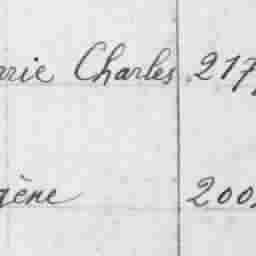 rie Charles 217
gène 200